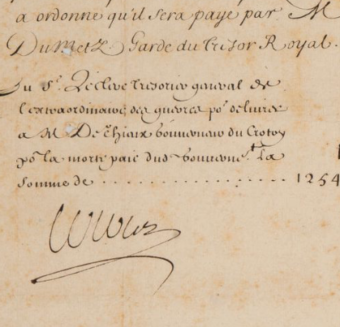 a ordonné qu'il sera payé par M
Du Metz Garde du Tresor Royal.
Au Sr. Leclere Tresorier general de
l'extraordinaire des guerres po.r delivrer
a M De Chiaux Gouverneur du Crotoy
po.r la morte paie dud. Gouvernem.t la
Somme de ........................ 1254